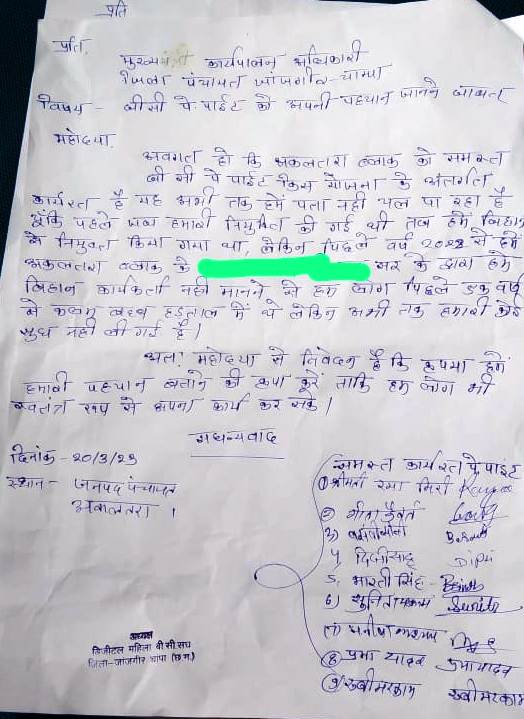 प्रति
प्रति,
मुख्य कार्यपालन अधिकारी
जिला पंचायत जांजगीर-चाम्पा
विषय - बीसी पे पाईंट को अपनी पहचान जानने बाबत
महोदया,
अवगत हो कि अकलतरा ब्लाक को समस्त
बी सी पे पाईंट किस योजना के अंतर्गत
कार्यरत है यह अभी तक हमें पता नही चल पा रहा है
चूंकि पहले जब हमारी नियुक्ति की गई थी तब हमें बिहान
से नियुक्त किया गया था, लेकिन पिछले वर्ष 2022 से हमें
अकलतरा ब्लाक के सर के द्वारा हमें
बिहान कार्यकर्ता नही मानने से हम लोग पिछले एक वर्ष
से कलम बंद हड़ताल में थे लेकिन अभी तक हमारी कोई
सुध नही ली गई है।
अतः महोदया से निवेदन है कि कृपया हमें
हमारी पहचान बताने की कृपा करें ताकि हम लोग भी
स्वतंत्र रूप से अपना कार्य कर सकें।
सधन्यवाद
दिनांक - 20/3/23
स्थान - जनपद पंचायत
अकलतरा।
समस्त कार्यरत पे पाईंट
① श्रीमती रमा गिरी
② गीता कैवर्त
3)
4)
5, भारती सिंह
6) सुनिता Sunita
(7)
⑧ प्रभा यादव प्रभा यादव
⑨ रूखीमरकाम रूखीमरकाम
अध्यक्ष
डिजीटल महिला बी.सी.संघ
जिला-जांजगीर चांपा (छ.ग.)